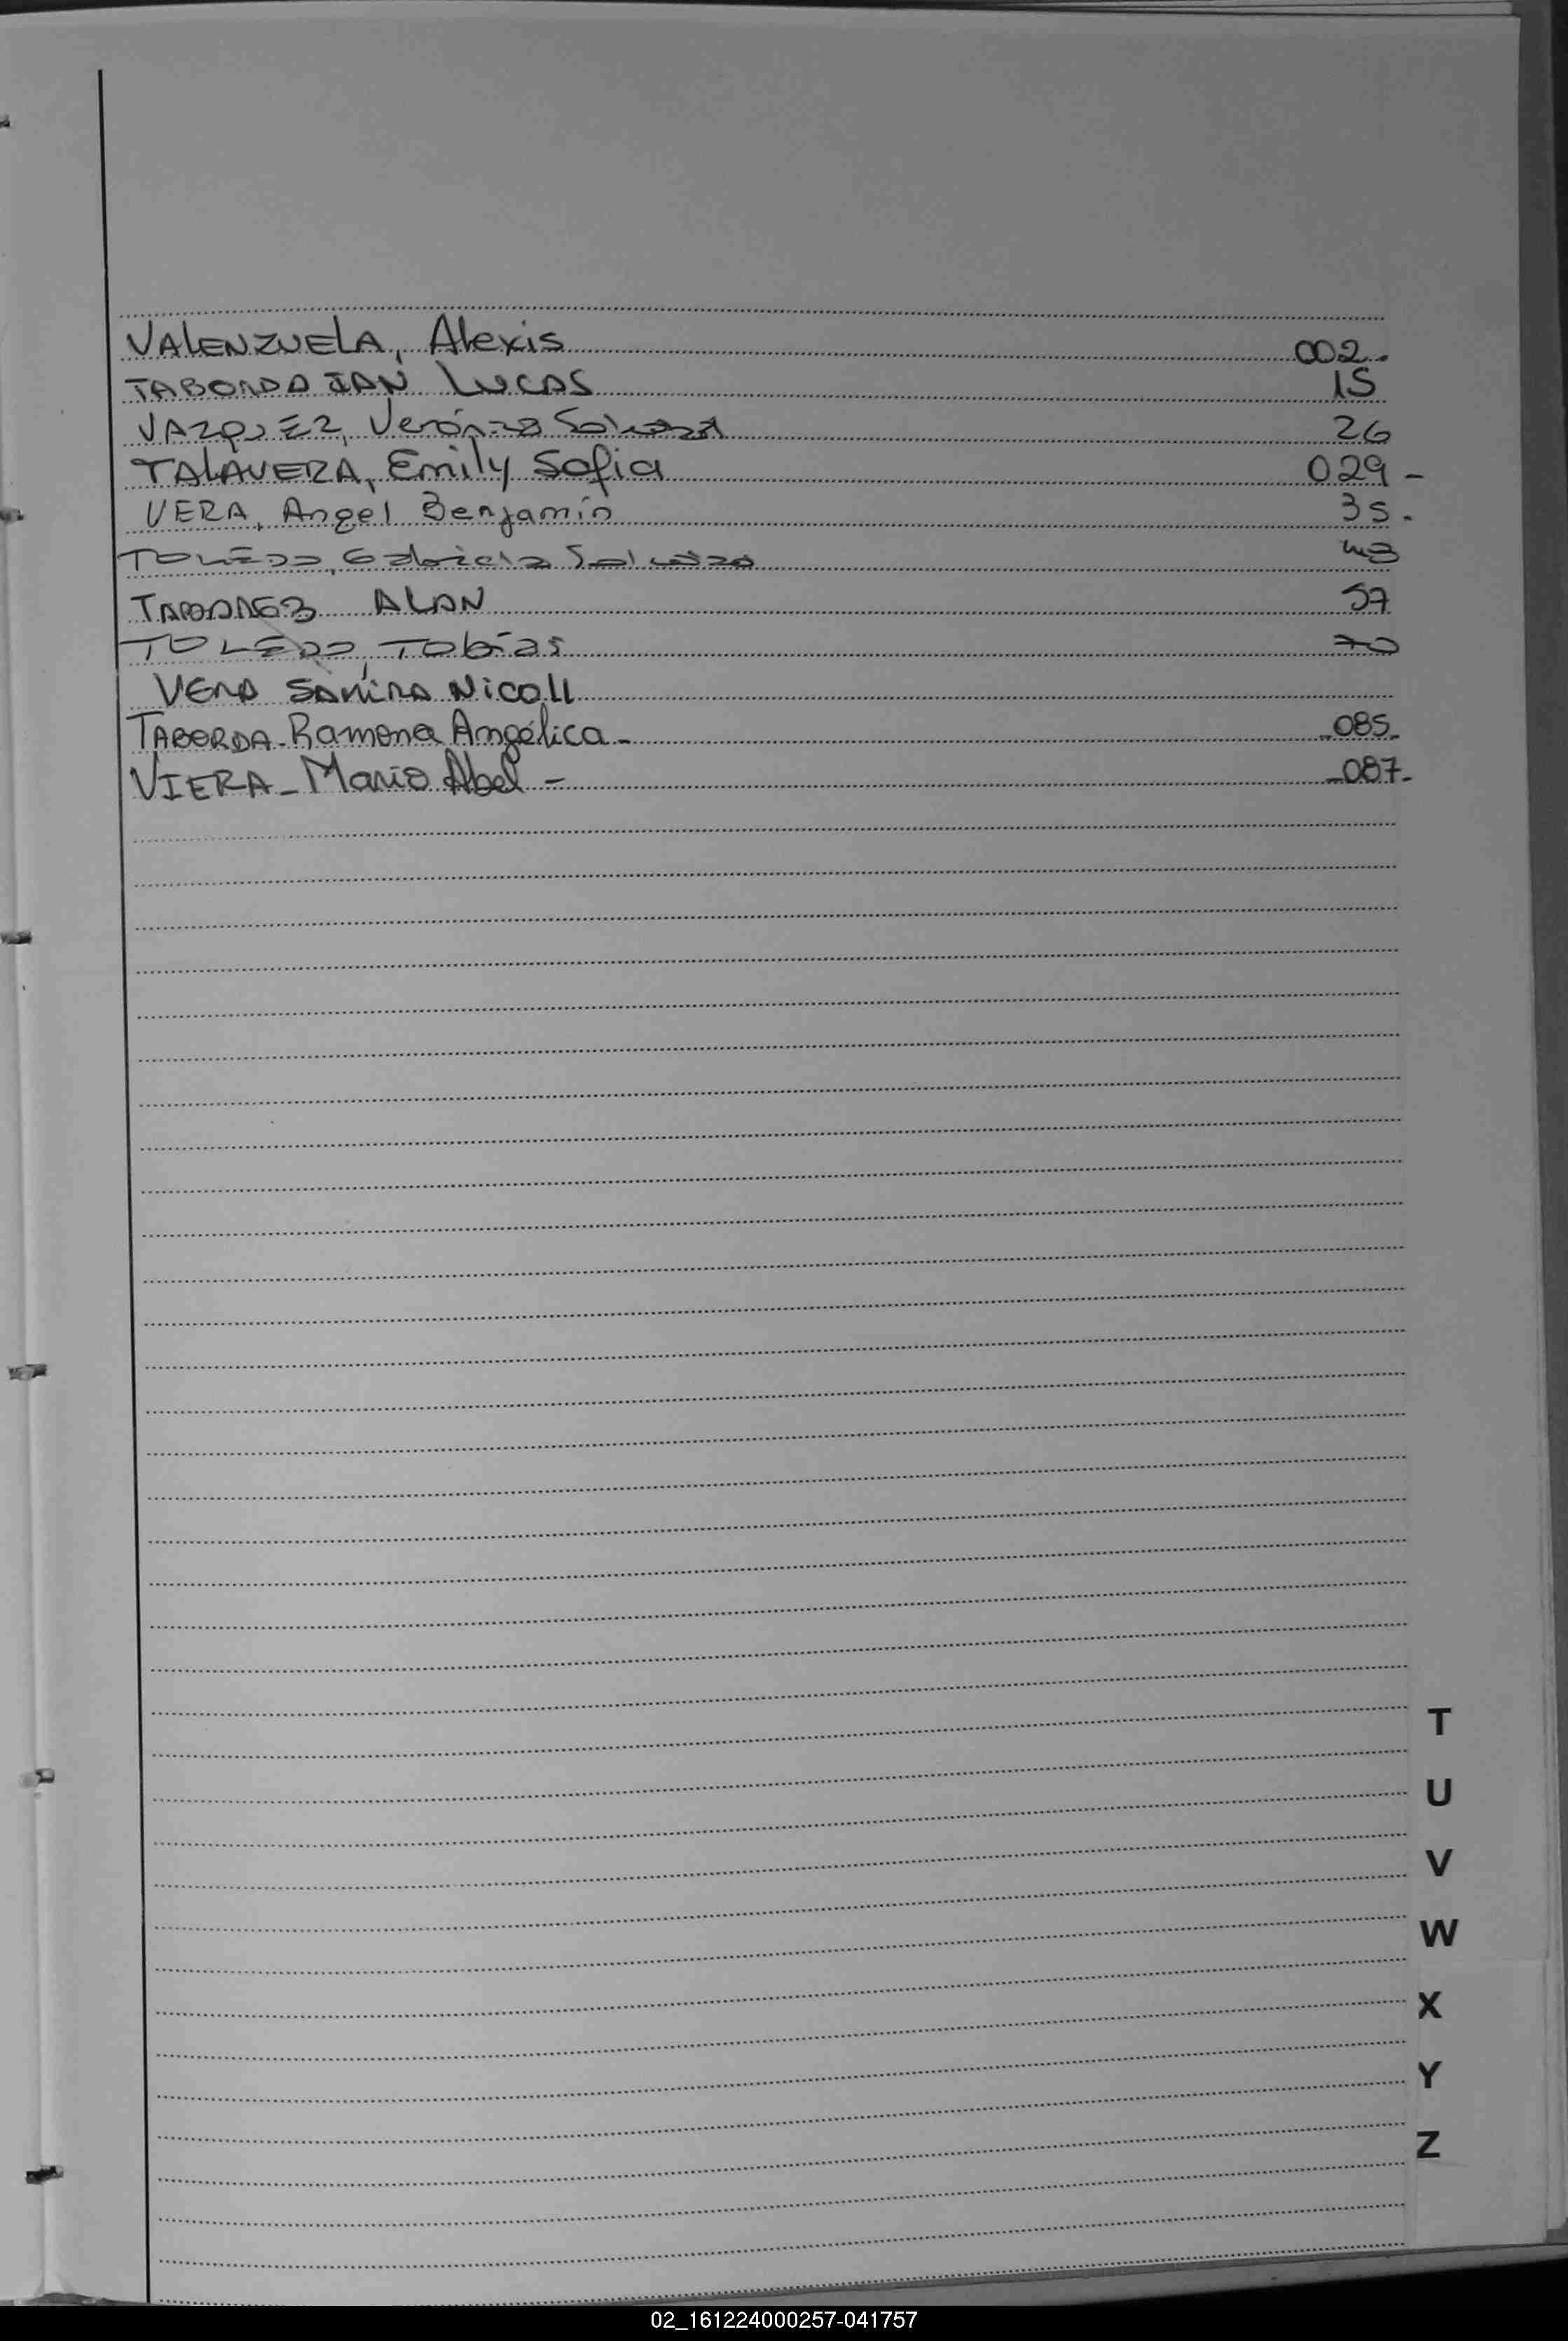 VALENZUELA, Alexis 002.
TABORDA IAN LUCAS 15
VAZQUEZ, Verónica Soledad 26
TALAVERA, Emily Sofia 029 -
VERA, Angel Benjamín 35.
TOLEDO, Gabriela Soledad 43
ALAN 57
TOLEDO, Tobías 70
VERA SAMIRA Nicoll
TABORDA - Ramona Angélica - _085_
VIERA - Mario Abel - _087-
T
U
V
W
X
Y
Z
02_161224000257-041757